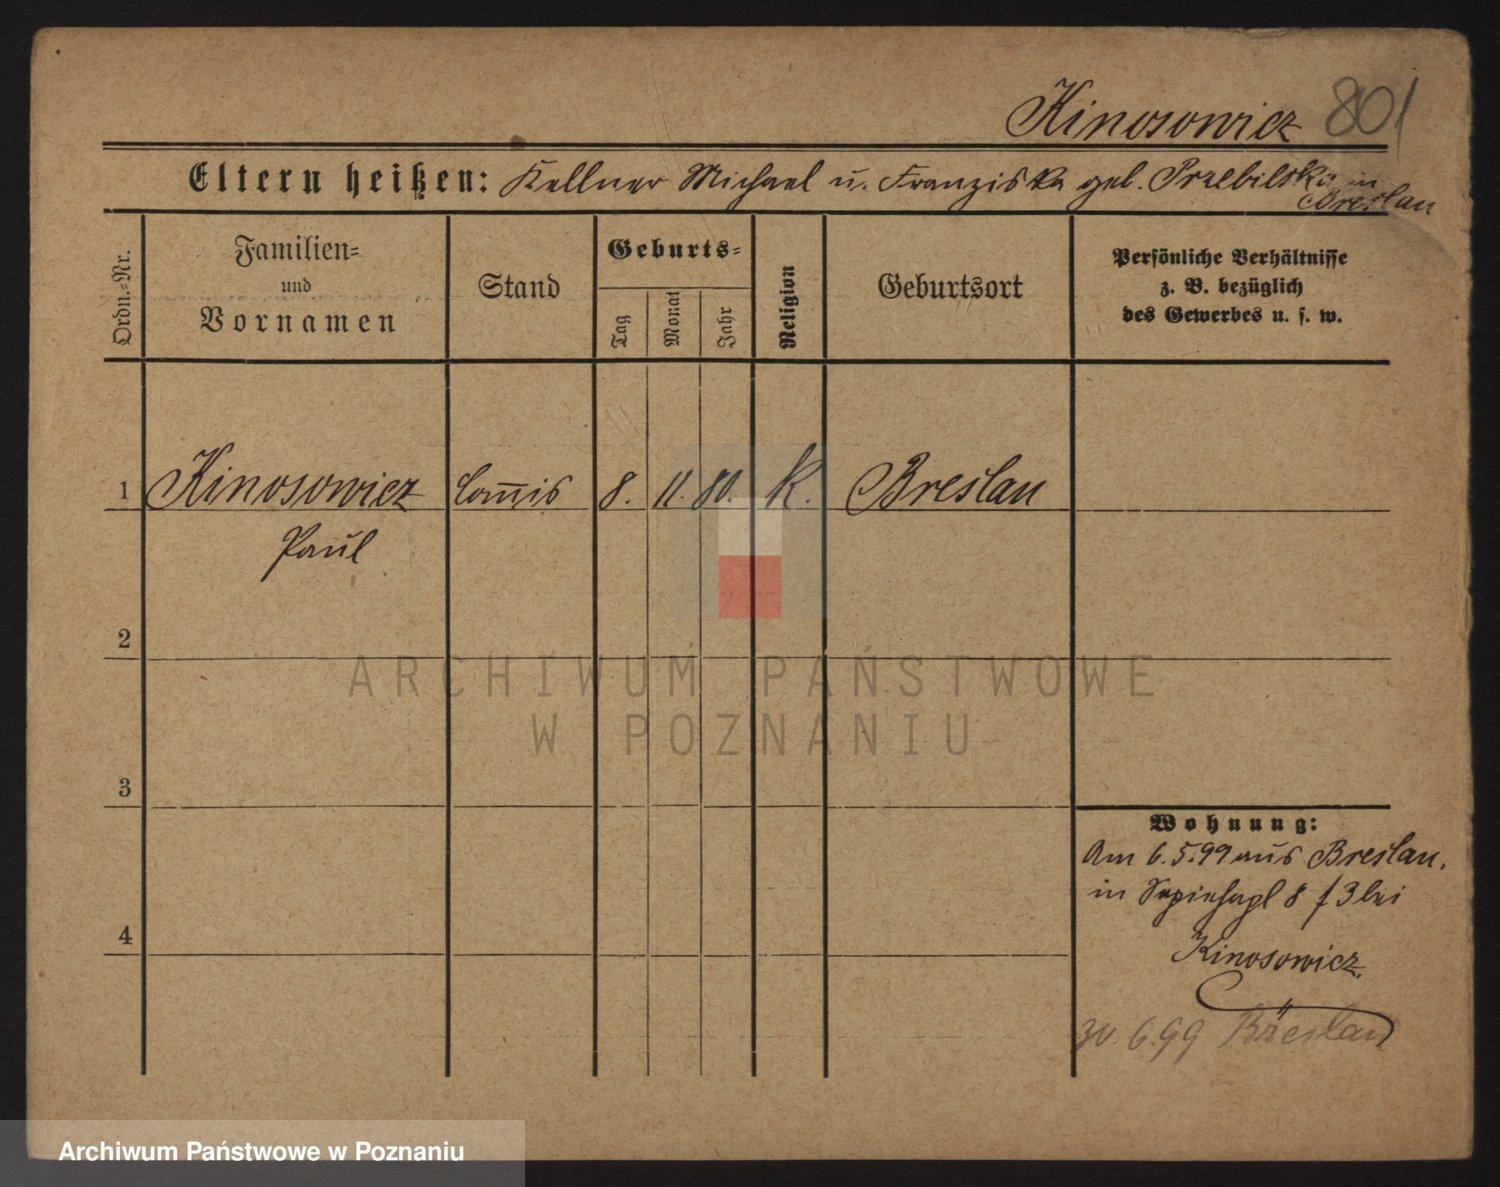 Kinosowicz 801
Eltern heißen: Kellner Michael u. Franziska geb. Przebilska in
Breslau
Ordn.-Nr.
Familien-
und
Vornamen
Stand
Geburts-
Tag
Monat
Jahr
Religion
Geburtsort
Persönliche Verhältnisse
z. B. bezüglich
des Gewerbes u. s. w.
1 Kinosowicz Com̅is 8. 11. 80. K. Breslau
Paul
2
3
4
Wohnung:
Am 6.5.99 aus Breslau.
in 8 3 bei
Kinosowicz.
6.99 Breslau
ARCHIWUM PAŃSTWOWE
W POZNANIU
Archiwum Państwowe w Poznaniu